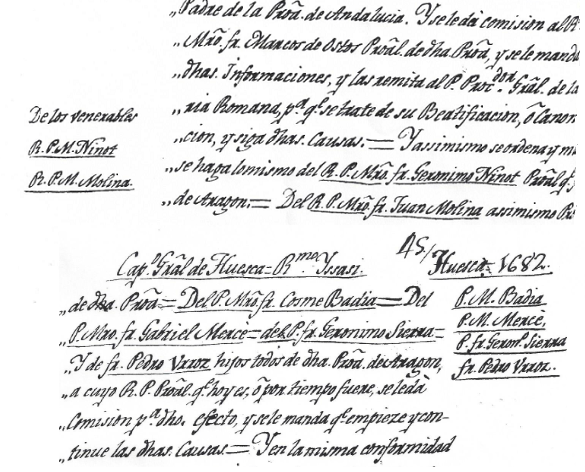 „Padre de la Proã. de Andalucia. Y se le dè comision al R.
„Mrõ. fr. Marcos de Ostos Proãl. de dha. Proã, y se le manda
„dhas. Informaciones, y las remita al P. Proc.dor Grãl. de la
De los venerables
„ria Romana, p.ª q.e se trate de su Beatificacion, ò Canon
R. P. M. Ninot
„cion, y siga dhas. Causas.= Y assimismo se ordena y m
R. P. M. Molina.
„se haga lo mismo del R. P. Mrõ. fr. Geronimo Ninot Proãl q.e
„de Aragon.= Del R. P. Mrõ. fr. Juan Molina assimismo
45/
Cap.o Grãl de Huesca= R.mo Yssasi.
Huesca= 1682.
„de dha. Proã= Del P. Mrõ. fr. Cosme Badia= Del
P. M. Badia
„P. Mro. fr. Gabriel Mercè= del P. fr. Geronimo Sierra=
P. M. Mercè,
P. fr. Geron.o Sierra
„Y de fr. Pedro Vrroz, hijos todos de dha. Proã. de Aragon,
fr. Pedro Vrroz.
„a cuyo R. P. Proãl. q.e hoy es, ò por tiempo fuere, se le dà
„Comision p.ª dho. efecto, y se le manda q.e empieze y con-
„tinue las dhas. Causas.= Y en la misma conformidad